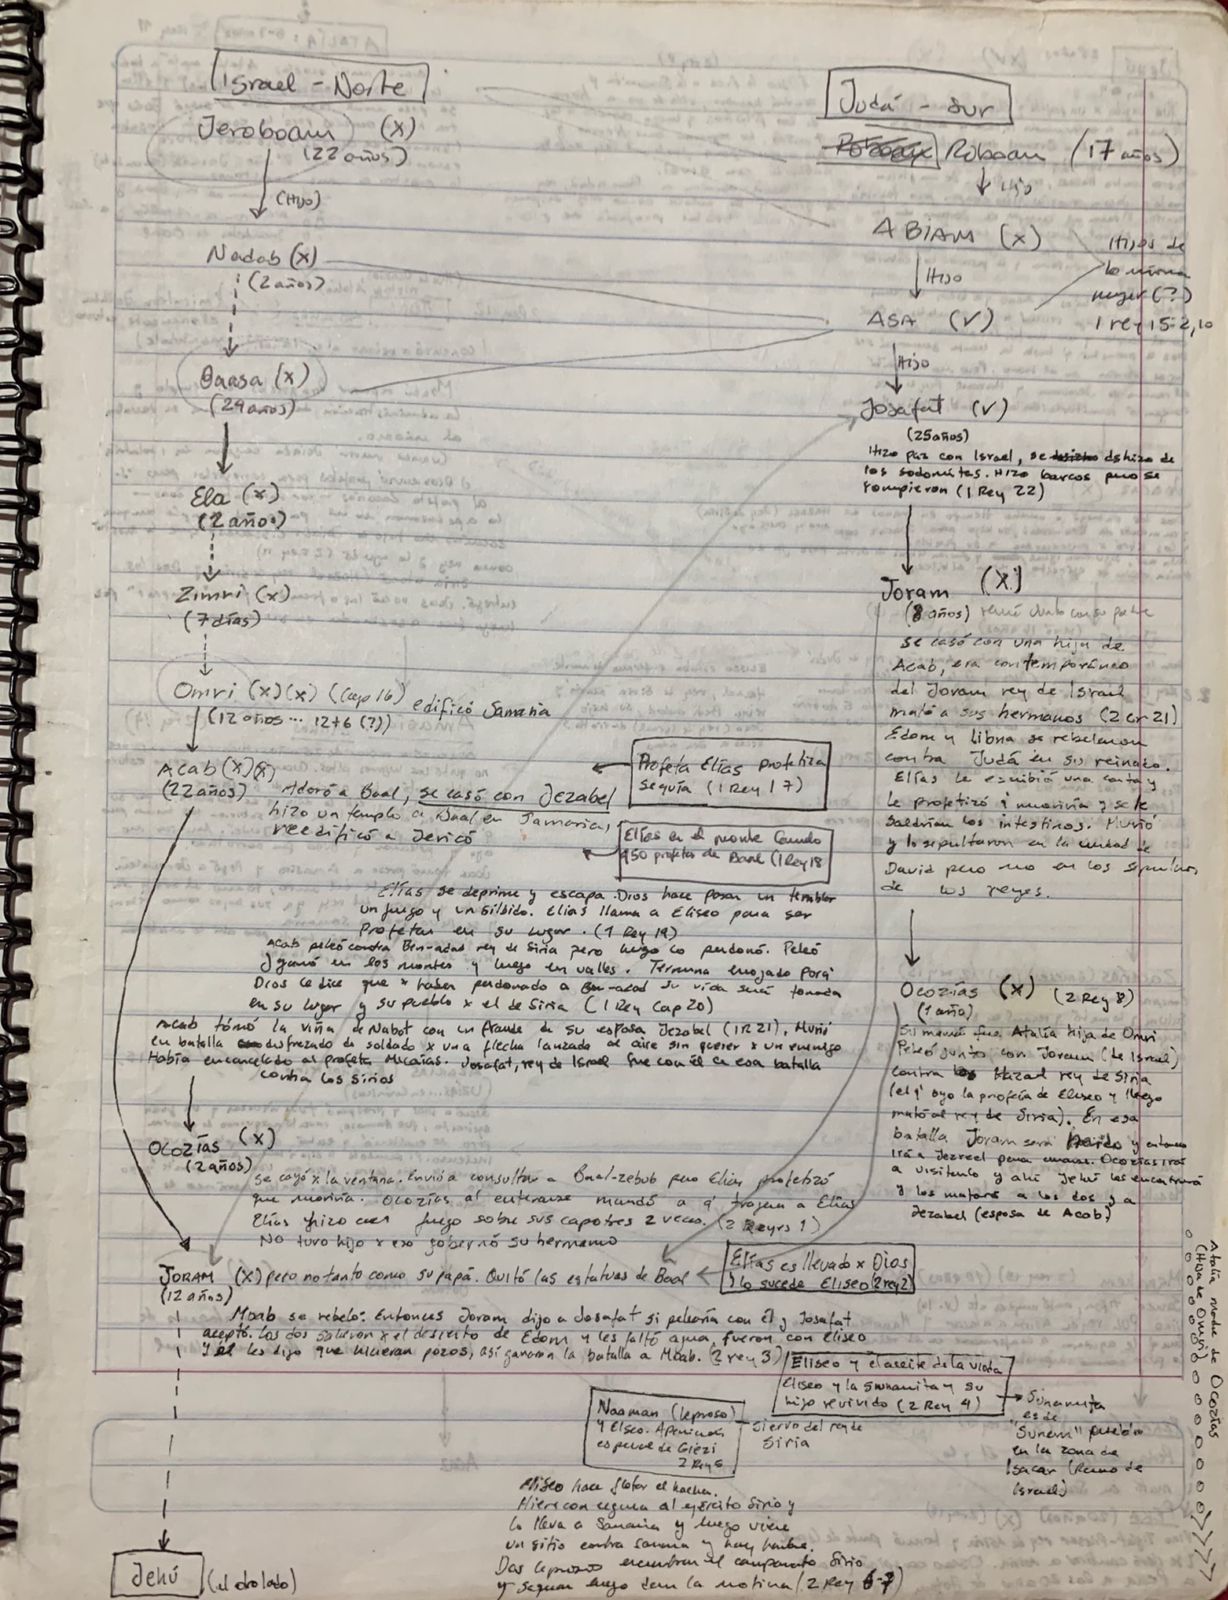 Israel - Norte
Jeroboam (X)
(22 años)
(Hijo)
Nadab (x)
(2 años)
Baasa (x)
(24 años)
Ela (x)
(2 años)
Zimri (x)
(7 días)
Omri (x)(x) (Cap 16) edificó Samaria
(12 años ... 12+6 (?))
Acab (x)(x)
(22 años)
Adoró a Baal, se casó con Jezabel
hizo un templo a Baal en Samaria,
reedificó a Jericó
Profeta Elías profetiza
sequía (1 Rey 17)
Elías en el monte
450 profetas de Baal (1 Rey 18
Elías se deprime y escapa. Dios hace pasar un temblor
un fuego y un silbido. Elías llama a Eliseo para ser
Profeta en su lugar. (1 Rey 19)
Acab peleó contra Ben-adad rey de Siria pero luego lo perdonó. Peleó
y ganó en los montes y luego en valles. Termina enojado porq'
Dios le dice que x haber perdonado a Ben-adad su vida será tomada
en su lugar y su pueblo x el de Siria (1 Rey Cap 20)
Acab tomó la viña de Nabot con un fraude de su esposa Jezabel (1R 21). Murió
en batalla disfrazado de soldado x una flecha lanzada al aire sin querer x un enemigo
Había encarcelado al profeta Micaías. Josafat, rey de Israel fue con él en esa batalla
contra los sirios
Ocozías (x)
(2 años)
Se cayó x la ventana. Envió a consultar a Baal-zebub pero Elías profetizó
que moriría. Ocozías al enterarse mandó a q' trajeran a Elías
Elías hizo caer fuego sobre sus capotres 2 veces. (2 Reyes 1)
No tuvo hijo x eso gobernó su hermano
Joram (x) pero no tanto como su papá. Quitó las estatuas de Baal
(12 años)
Elías es llevado x Dios
y lo sucede Eliseo (2 rey 2)
Moab se rebeló. Entonces Joram dijo a Josafat si pelearía con él y Josafat
aceptó. Los dos salieron x el desierto de Edom y les faltó agua, fueron con Eliseo
y él les dijo que hicieran pozos, así ganaron la batalla a Moab. (2 rey 3)
Eliseo y el aceite de la viuda
Eliseo y la sunamita y su
hijo revivido (2 Rey 4)
Sunamita
es de
"Sunem" pueblo
en la zona de
Isacar (Reino de
Israel)
Naaman (leproso)
y Eliseo.
de Giezi
2 Rey 5
Siervo del rey de
Siria
Eliseo hace flotar el hacha.
Hiere con ceguera al ejército Sirio y
lo lleva a Samaria y luego viene
un sitio contra Samaria y hay hambre.
Dos leprosos encuentran el campamento Sirio
y luego dan la noticia (2 Rey 6-7)
Jehú (el otro lado)
Judá - Sur
Roboam (17 años)
Hijo
ABIAM (x)
Hijo
Hijos de
la misma
mujer (?)
1 rey 15:2,10
ASA (V)
Hijo
Josafat (V)
(25 años)
Hizo paz con Israel, se deshizo de
los sodomitas. Hizo barcos pero se
rompieron (1 Rey 22)
Joram (x)
(8 años) reinó junto con su padre
se casó con una hija de
Acab, era contemporáneo
del Joram rey de Israel
mató a sus hermanos (2 cr 21)
Edom y Libna se rebelaron
contra Judá en su reinado.
Elías le escribió una carta y
le profetizó q' moriría y se le
saldrían los intestinos. Murió
y lo sepultaron en la ciudad de
David pero no en los sepulcros
de los reyes.
Ocozías (x) (2 Rey 8)
(1 año)
Su mamá fue Atalía hija de Omri
Peleó junto con Joram (de Israel)
contra Hazael rey de Siria
(el q' oyó la profecía de Eliseo y luego
mató al rey de Siria). En esa
batalla Joram será herido y entonces
irá a Jezreel para. Ocozías irá
a visitarlo y ahí Jehú los encontrará
y los matará a los dos y a
Jezabel (esposa de Acab)
Atalía madre de Ocozías
(Hija de Omri)